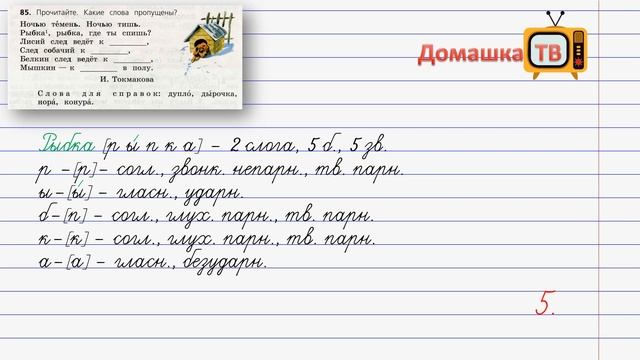 85. Прочитайте. Какие слова пропущены?
Ночью те́мень. Ночью тишь.
Рыбка¹, рыбка, где ты спишь?
Лисий след ведёт к ________,
След собачий к ________,
Белкин след ведёт к ________,
Мышкин — к ________ в полу.
И. Токмакова
Слова для справок: дупло́, ды́рочка,
нора́, конура́.
Домашка ТВ
Рыбка [р ы́ п к а] – 2 слога, 5 б., 5 зв.
р – [р] – согл., звонк. непарн., тв. парн.
ы – [ы́] – гласн., ударн.
б – [п] – согл., глух. парн., тв. парн.
к – [к] – согл., глух. парн., тв. парн.
а – [а] – гласн., безударн.
5.